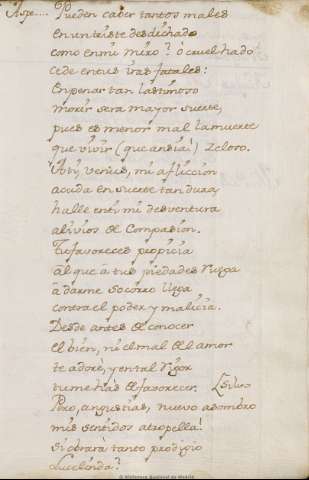 Aspe.... Pueden caber tantos males
en un triste desdichado
como en mi miro? ò cruel hado
cede en tus iras fatales:
En penar tan lastimoso
morir sera mayor suerte,
pues es menor mal la muerte
que vivir (que ansia!) zeloso.
A ti, venus, mi afliccion
acuda en suerte tan dura,
halle en ti mi desventura
alivios de Compasion.
Tu favoreces propicia
âl que â tus piedades
â darme socorro
contra el poder y malicia.
Desde antes de conocer
el bien, ni el mal de el amor
te adorè, y en tal
tu me hàs de favorecer.
Pero, angustias, nuevo asombro
mis sentidos atropella!
Si obrarà tanto prodigio
Lucelinda?
© Biblioteca Nacional de España